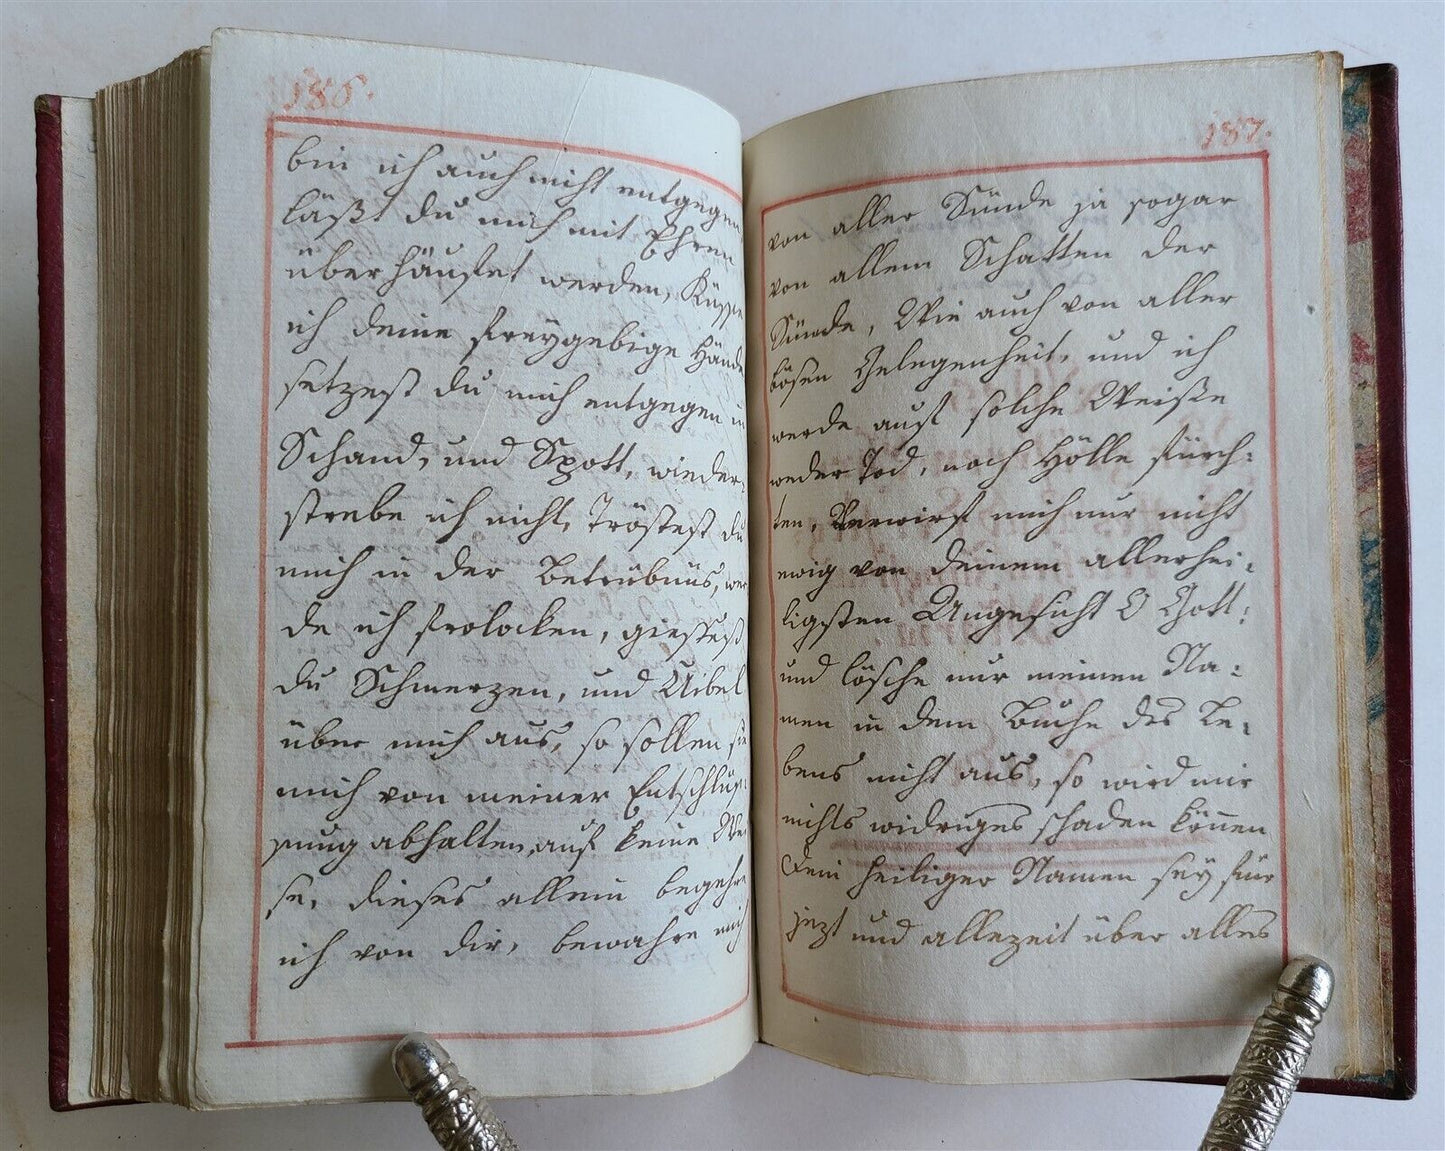 186.
bin ich auch nicht entgegen
läßt du mich mit Ehren
überhäuffet werden, Küsse
ich deine freygebige Hände
setzest du mich entgegen in
Schand, und Spott, wieder¬
strebe ich nicht, Tröstest du
mich in der Betrübnüs, wer
de ich frolocken, giessest
du Schmerzen, und Uibel
über mich aus, so sollen sie
mich von meiner Entschlüs¬
sung abhalten, auf keine Wei
se, dieses allein begehre
ich von dir, bewahre mich
187.
von aller Sünde ja sogar
von allem Schatten der
Sünde, Wie auch von aller
bösen Gelegenheit, und ich
werde auf solche Weiße
weder Tod, noch Hölle fürch:
ten, Verwirf mich nur nicht
ewig von deinem allerhei:
ligsten Angesicht O Gott:
und lösche nur meinen Na:
men in dem Buche des Le:
bens nicht aus, so wird mir
nichts widriges schaden können
Dein heiliger Namen sey für
jezt und allezeit über alles